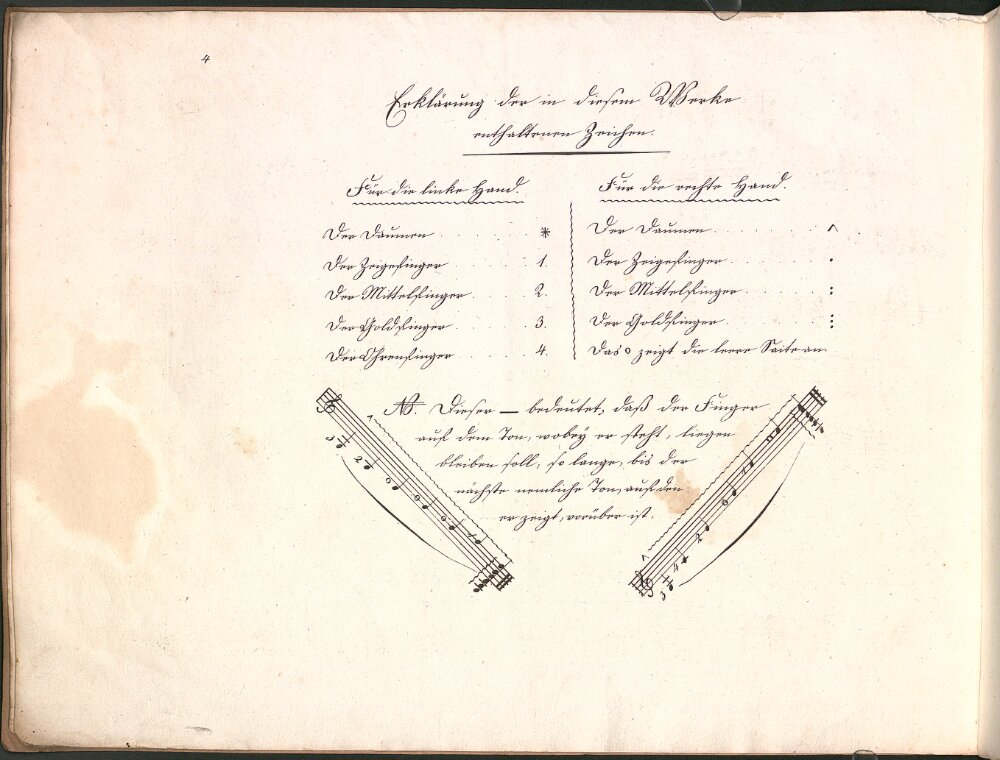 4
Erklärung der in diesem Werke
enthaltenen Zeichen.
Für die linke Hand.
Der Daumen . . . . . . . *
Der Zeigefinger . . . . . . 1.
Der Mittelfinger . . . . . 2.
Der Goldfinger . . . . . . 3.
Der Ohrenfinger . . . . . 4.
Für die rechte Hand.
Der Daumen . . . . . . . ^
Der Zeigefinger . . . . . . .
Der Mittelfinger . . . . . . :
Der Goldfinger . . . . . . ⋮
Das o zeigt die leere Saite an.
NB. Dieser — bedeutet, daß der Finger
auf dem Ton, wobey er steht, liegen
bleiben soll, so lange, bis der
nächste nemliche Ton, auf den
er zeigt, vorüber ist.